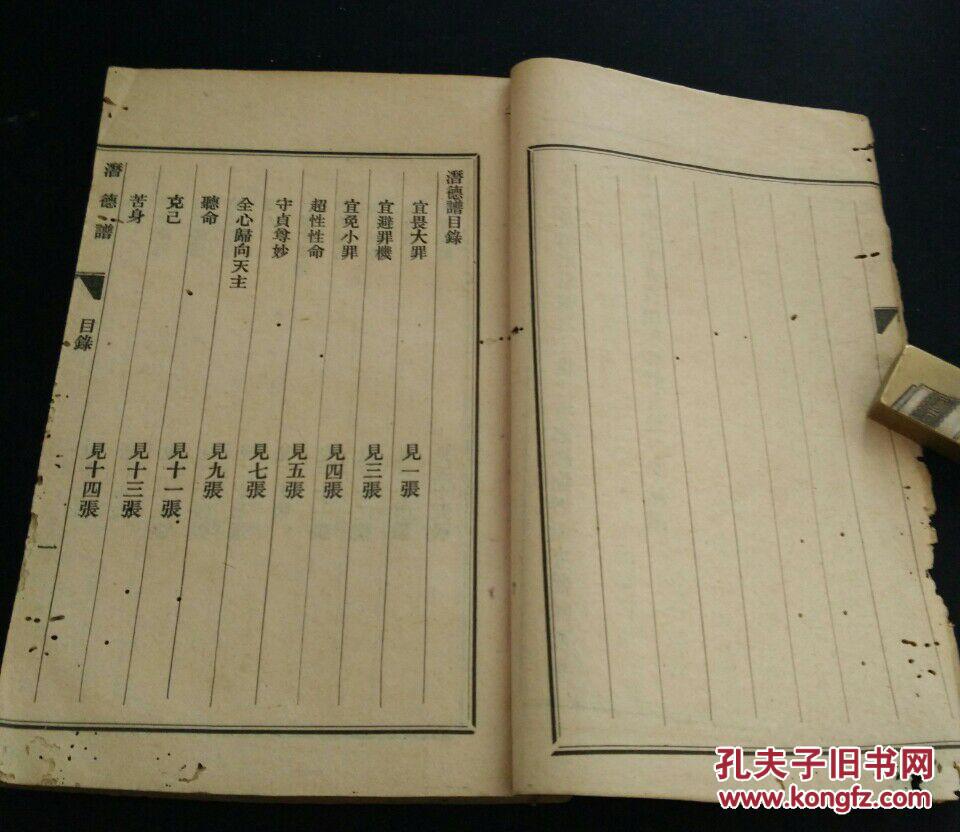 潛德譜目錄
宜畏大罪 見一張
宜避罪機 見三張
宜免小罪 見四張
超性性命 見五張
守貞尊妙 見七張
全心歸向天主 見九張
聽命 見十一張
克己 見十三張
苦身 見十四張
潛德譜 目錄 一
孔夫子旧书网
www.kongfz.com